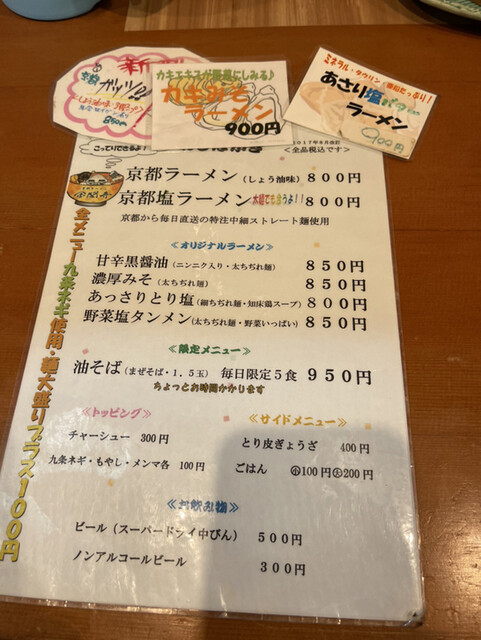 新
京都
ガッツ
しょうゆ味
850円
カキエキスが最高にしみる♪
カキみそ
ラーメン
900円
ミネラル・タウリン・亜鉛たっぷり！
あさり塩バター
ラーメン
900円
こってりできるよ！
2017年8月改訂
<全品税込です>
京都ラーメン（しょう油味）８００円
京都塩ラーメン太麺でも合うよ！！８００円
京都から毎日直送の特注中細ストレート麺使用
≪オリジナルラーメン≫
甘辛黒醤油（ニンニク入り・太ちぢれ麺）８５０円
濃厚みそ（太ちぢれ麺）８５０円
あっさりとり塩（細ちぢれ麺・知床鶏スープ）８００円
野菜塩タンメン（太ちぢれ麺・野菜いっぱい）８５０円
≪限定メニュー≫
油そば（まぜそば・１.５玉）毎日限定５食 ９５０円
ちょっとお時間かかります
≪トッピング≫
チャーシュー 300円
九条ネギ・もやし・メンマ各 100円
≪サイドメニュー≫
とり皮ぎょうざ 400円
ごはん ㊥100円㊛200円
≪お飲み物≫
ビール（スーパードライ中びん）５００円
ノンアルコールビール ３００円
全メニュー九条ネギ使用・麺大盛りプラス１００円